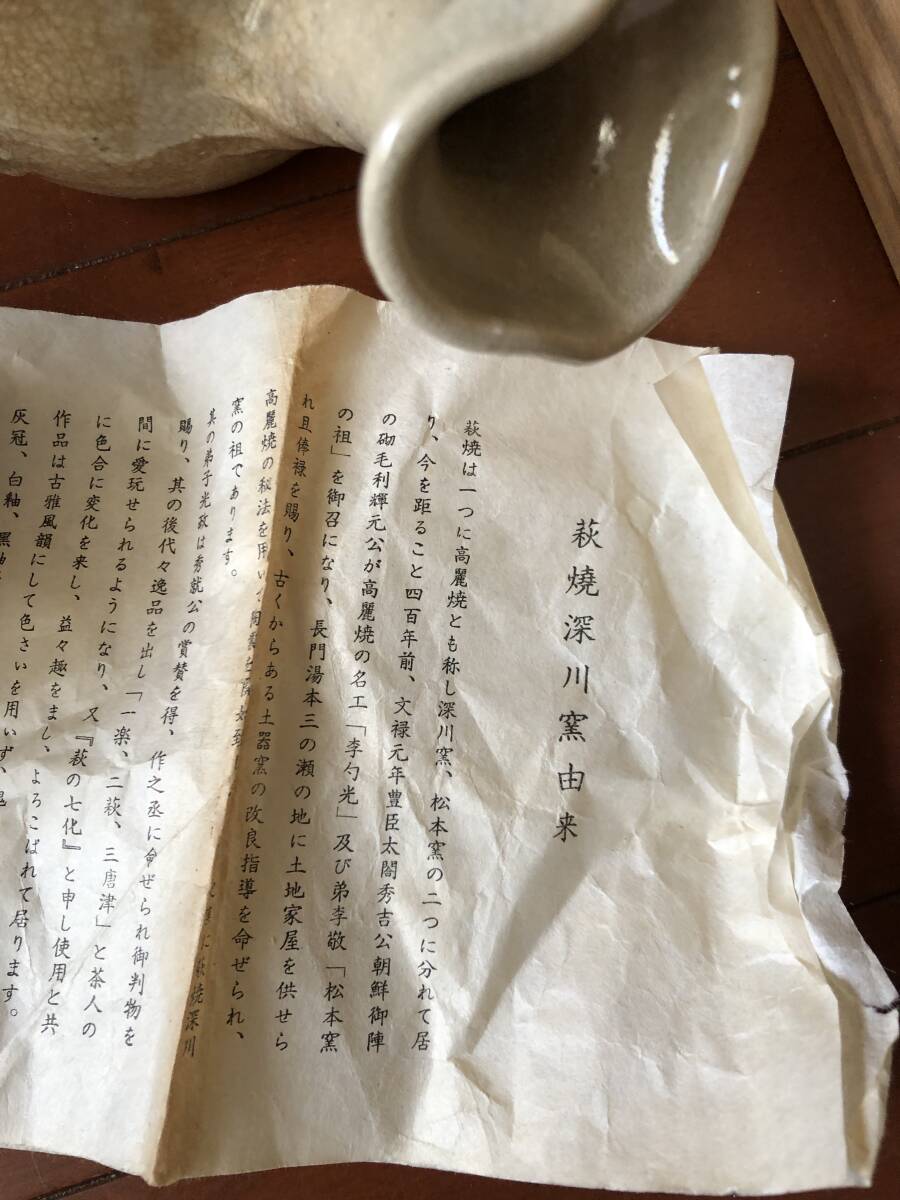 萩燒深川窯由来
萩焼は一つに高麗焼とも称し深川窯、松本窯の二つに分れて居
り、今を距ること四百年前、文禄元年豊臣太閤秀吉公朝鮮御陣
の砌毛利輝元公が高麗焼の名工「李勺光」及び弟李敬「松本窯
の祖」を御召になり、長門湯本三の瀬の地に土地家屋を供せら
れ且俸禄を賜り、古くからある土器窯の改良指導を命ぜられ、
高麗焼の秘法を用い 萩焼深川
窯の祖であります。
其の弟子光政は秀就公の賞賛を得、作之丞に命ぜられ御判物を
賜り、其の後代々逸品を出し「一楽、二萩、三唐津」と茶人の
間に愛玩せられるようになり、又『萩の七化』と申し使用と共
に色合に変化を来し、益々趣をまし、よろこばれて居ります。
作品は古雅風韻にして色さいを用いず、
灰冠、白釉、黒釉